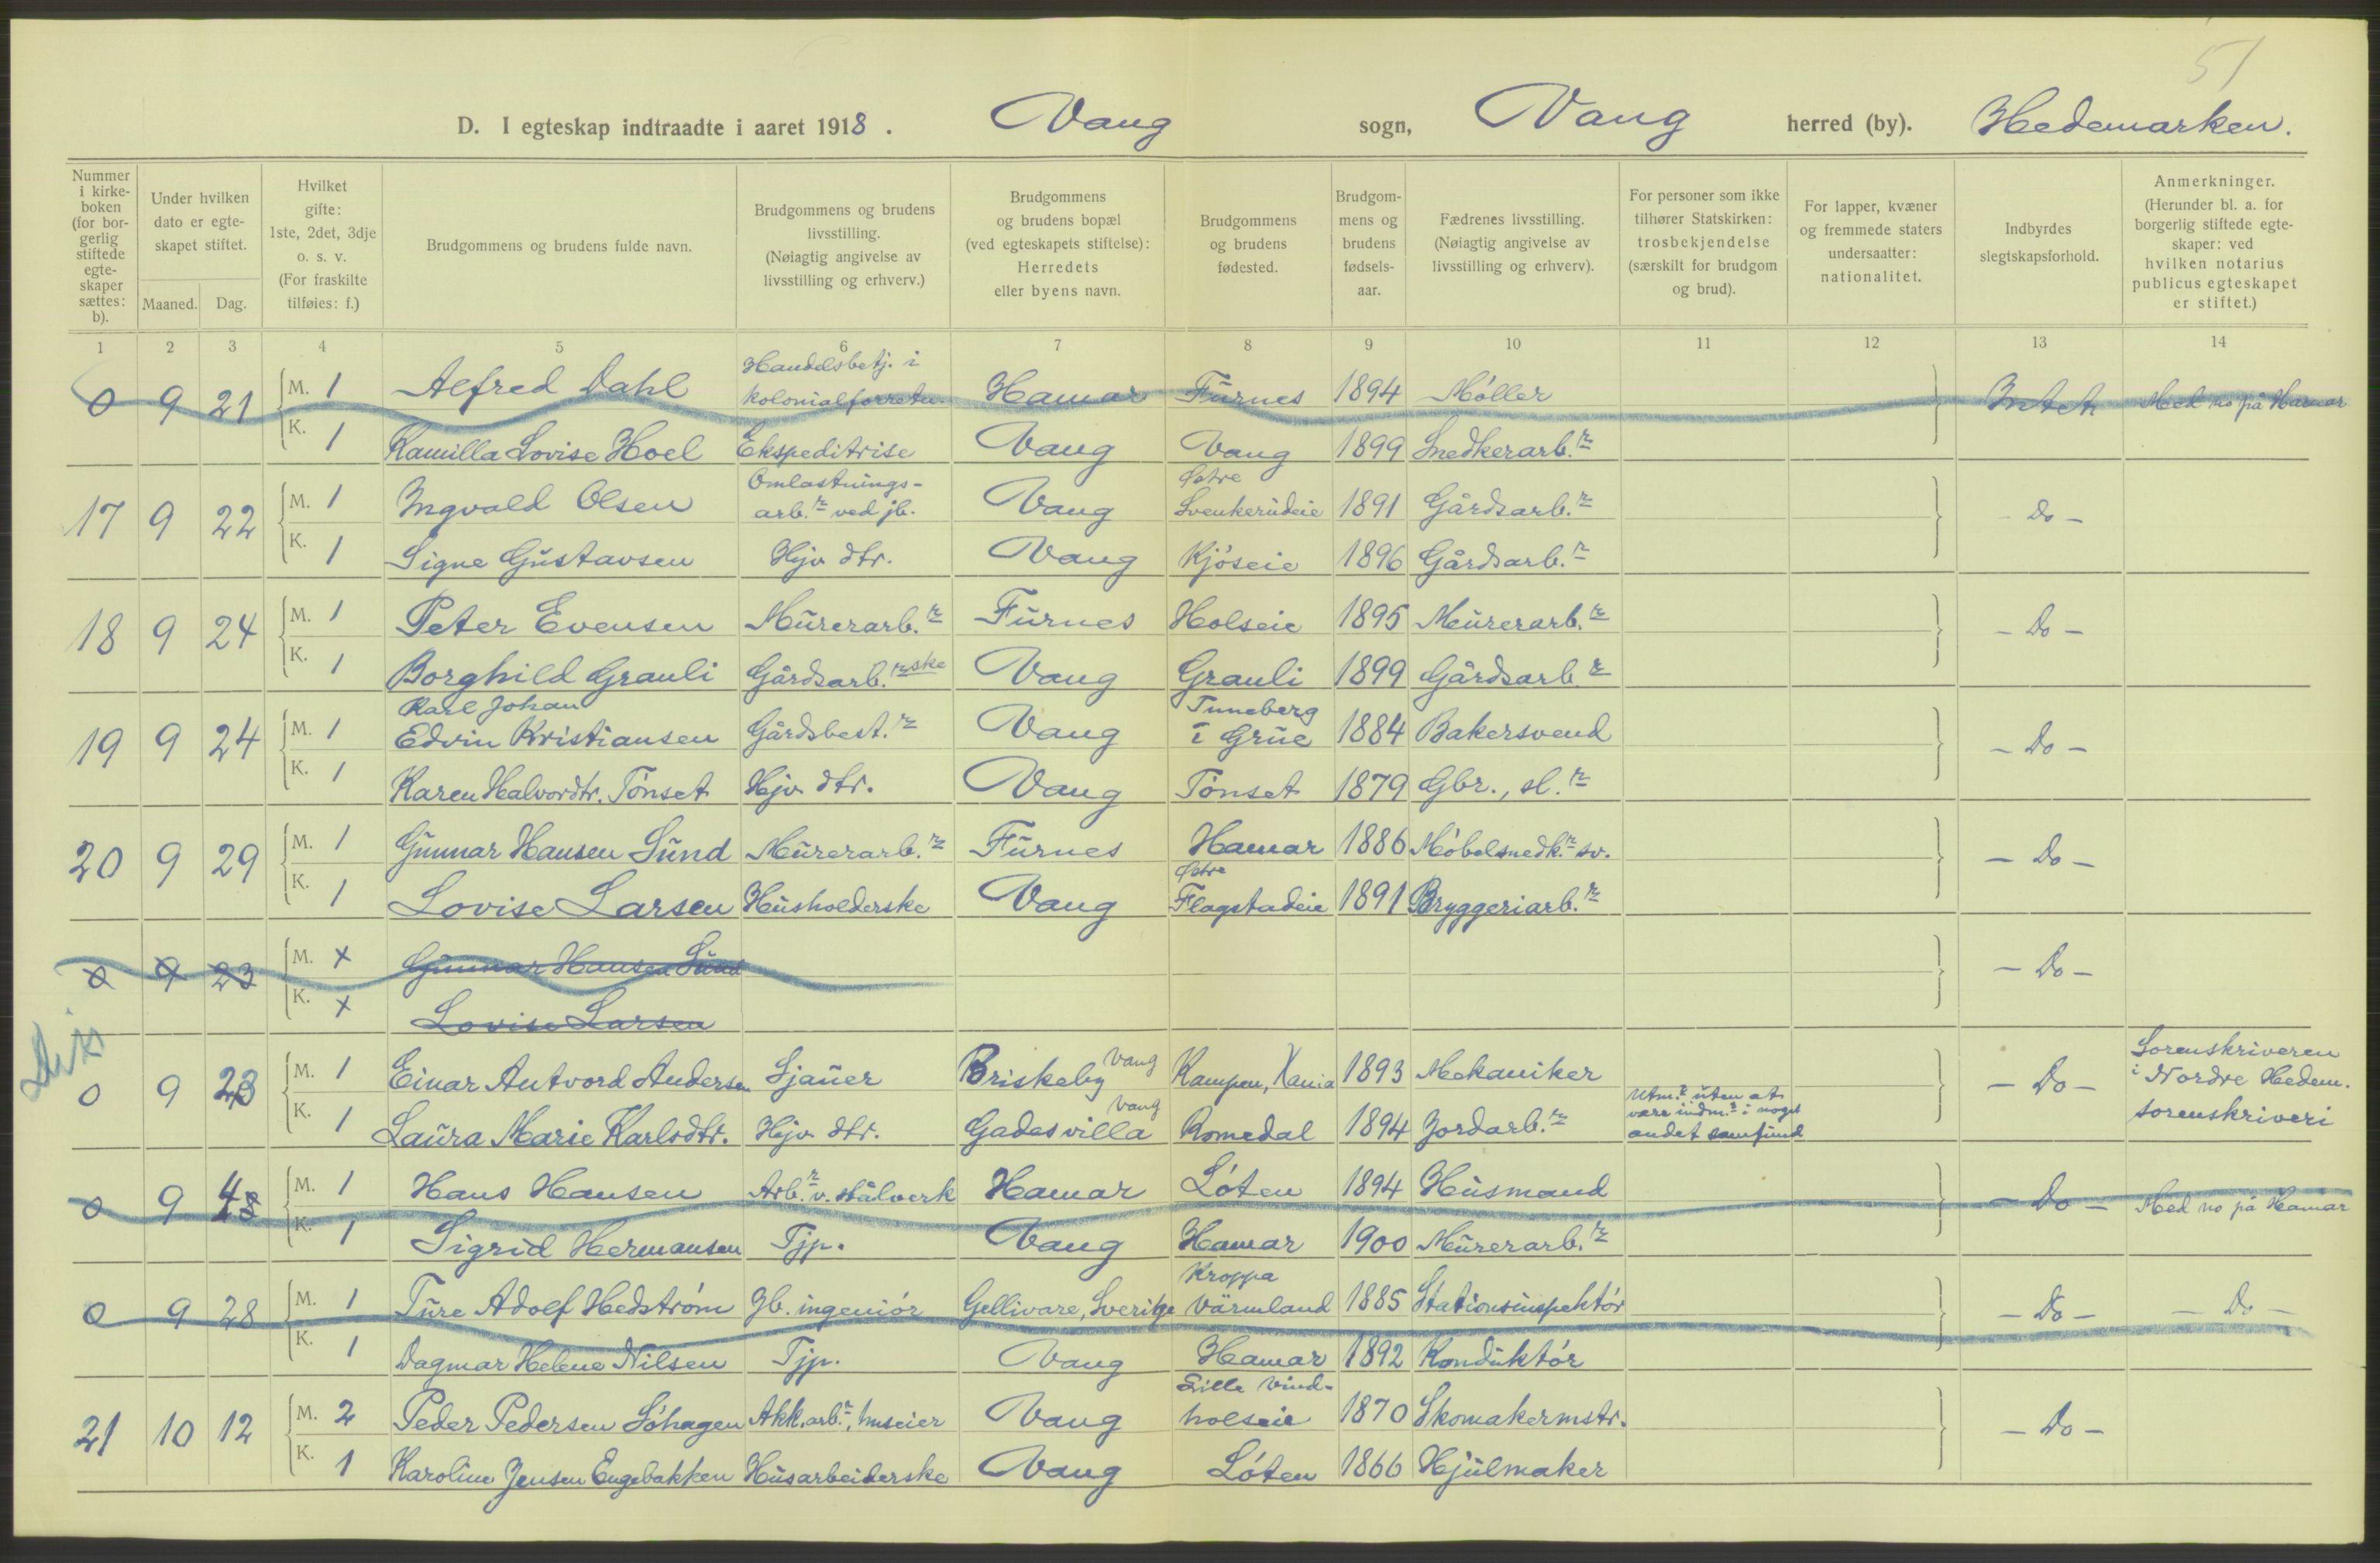 51
D. I egteskap indtraadte i aaret 1918. Vang sogn, Vang herred (by). Hedemarken.
Nummer i kirke-boken (for bor-gerlig stiftede egte-skaper sættes: b).
Under hvilken dato er egte-skapet stiftet.
Maaned. Dag.
Hvilket gifte: 1ste, 2det, 3dje o. s. v. (For fraskilte tilføies: f.)
Brudgommens og brudens fulde navn.
Brudgommens og brudens livsstilling. (Nøiagtig angivelse av livsstilling og erhverv.)
Brudgommens og brudens bopæl (ved egteskapets stiftelse): Herredets eller byens navn.
Brudgommens og brudens fødested.
Brudgom-mens og brudens fødsels-aar.
Fædrenes livsstilling. (Nøiagtig angivelse av livsstilling og erhverv).
For personer som ikke tilhører Statskirken: trosbekjendelse (særskilt for brudgom og brud).
For lapper, kvæner og fremmede staters undersaatter: nationalitet.
Indbyrdes slegtskapsforhold.
Anmerkninger. (Herunder bl. a. for borgerlig stiftede egte-skaper: ved hvilken notarius publicus egteskapet er stiftet.)
1 2 3 4 5 6 7 8 9 10 11 12 13 14
0 9 21 M. 1 Alfred Dahl Handelsbetj. i kolonialforretn. Hamar Furnes 1894 Møller Intet Med no på Hamar
K. 1 Kamilla Lovise Hoel Ekspeditrise Vang Vang 1899 Snedkerarb.r
17 9 22 M. 1 Ingvald Olsen Omlastnings-arb.r ved jb. Vang Østre Svenkerudeie 1891 Gårdsarb.r - Do -
K. 1 Signe Gustavsen Hjv dtr. Vang Kjøseie 1896 Gårdsarb.r
18 9 24 M. 1 Peter Evensen Murerarb.r Furnes Holseie 1895 Murerarb.r - Do -
K. 1 Borghild Grauli Gårdsarb.rske Vang Grauli 1899 Gårdsarb.r
19 9 24 M. 1 Karl Johan Edvin Kristiansen Gårdsbest.r Vang Tuneberg i Grue 1884 Bakersvend - Do -
K. 1 Karen Halvordtr. Tønset Hjv dtr. Vang Tønset 1879 Gbr., sl.r
20 9 29 M. 1 Gunnar Hansen Sund Murerarb.r Furnes Hamar 1886 Møbelsnedk.r sv. - Do -
K. 1 Lovise Larsen Husholderske Vang Østre Flagstadeie 1891 Bryggeriarb.r
0 9 23 M. x Gunnar Hansen Sund - Do -
K. x Lovise Larsen
0 9 23 M. 1 Einar Antvord Andersen Sjauer Briskeby Vang Kampen, Xania 1893 Mekaniker - Do - Sorenskriveren i Nordre Hedem. sorenskriveri
K. 1 Laura Marie Karlsdtr. Hjv dtr. Gadesvilla Vang Romedal 1894 Jordarb.r Utm.t uten at være indm.t i noget andet samfund
0 9 M. 1 Hans Hansen Arb.r v. stålverk Hamar Løten 1894 Husmand - Do - Med no på Hamar
K. 1 Sigrid Hermansen Tjp. Vang Hamar 1900 Murerarb.r
0 9 28 M. 1 Ture Adolf Hedstrøm Jb. ingeniør Gellivare, Sverige Kroppa Värmland 1885 Stationsinspektør - Do - - Do -
K. 1 Dagmar Helene Nilsen Tjp. Vang Hamar 1892 Konduktør
21 10 12 M. 2 Peder Pedersen Løhagen Akk.arb.r, huseier Vang Lille Vind-holseie 1870 Skomakermstr. - Do -
K. 1 Karoline Jensen Engebakken Husarbeiderske Vang Løten 1866 Hjulmaker